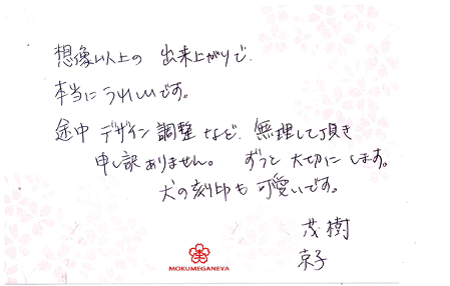 想像以上の 出来上がりで
本当に うれしいです。
途中 デザイン 調整 など、無理して頂き
申し訳ありません。 ずっと 大切に します。
犬の刻印も 可愛いです。
茂樹
京子
MOKUMEGANEYA